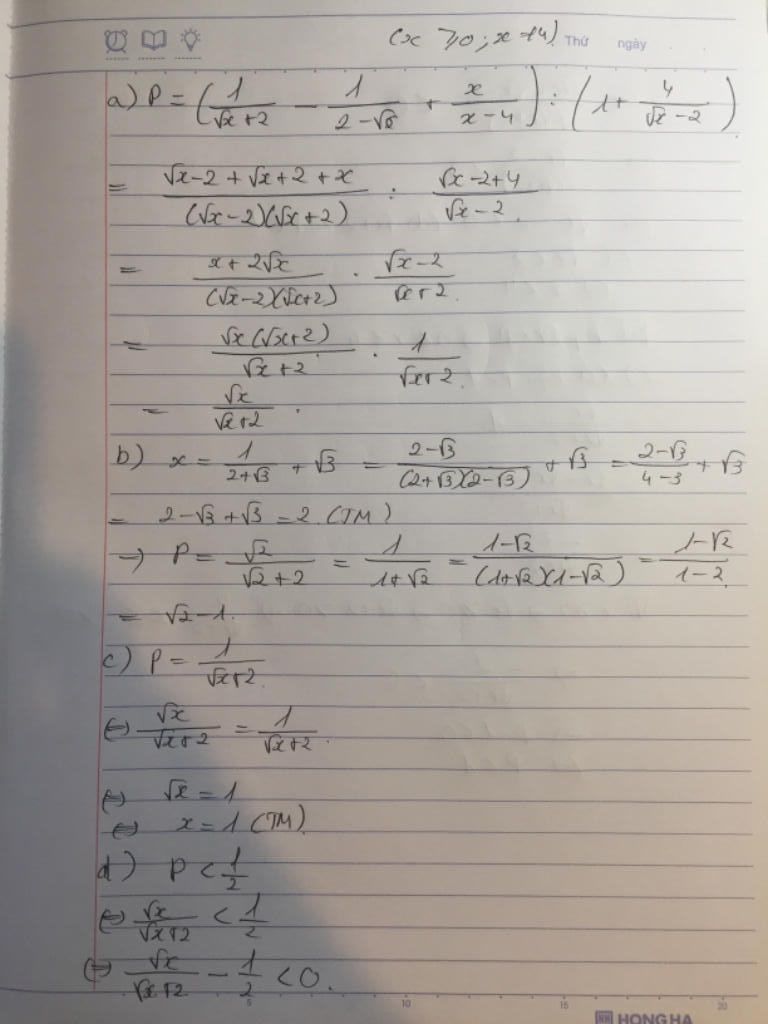 (x ⩾0 ; x ≠4) Thứ ngày
a) P = (1/(√x+2) − 1/(2−√x) + x/(x−4)) : (1+ 4/(√x−2))
= (√x−2+√x+2+x)/((√x−2)(√x+2)) : (√x−2+4)/(√x−2).
= (x+2√x)/((√x−2)(√x+2)) · (√x−2)/(√x+2).
= (√x(√x+2))/(√x+2) · 1/(√x+2).
= √x/(√x+2).
b) x = 1/(2+√3) + √3 = (2−√3)/((2+√3)(2−√3)) + √3 = (2−√3)/(4−3) + √3
= 2−√3+√3 = 2 (TM)
→ P = √2/(√2+2) = 1/(1+√2) = (1−√2)/((1+√2)(1−√2)) = (1−√2)/(1−2).
= √2−1.
c) P = 1/(√x+2).
⇔ √x/(√x+2) = 1/(√x+2).
⇔ √x = 1
⇔ x = 1 (TM).
d) P < 1/2
⇔ √x/(√x+2) < 1/2
⇔ √x/(√x+2) − 1/2 < 0.
5 10 15 20
HONG HA